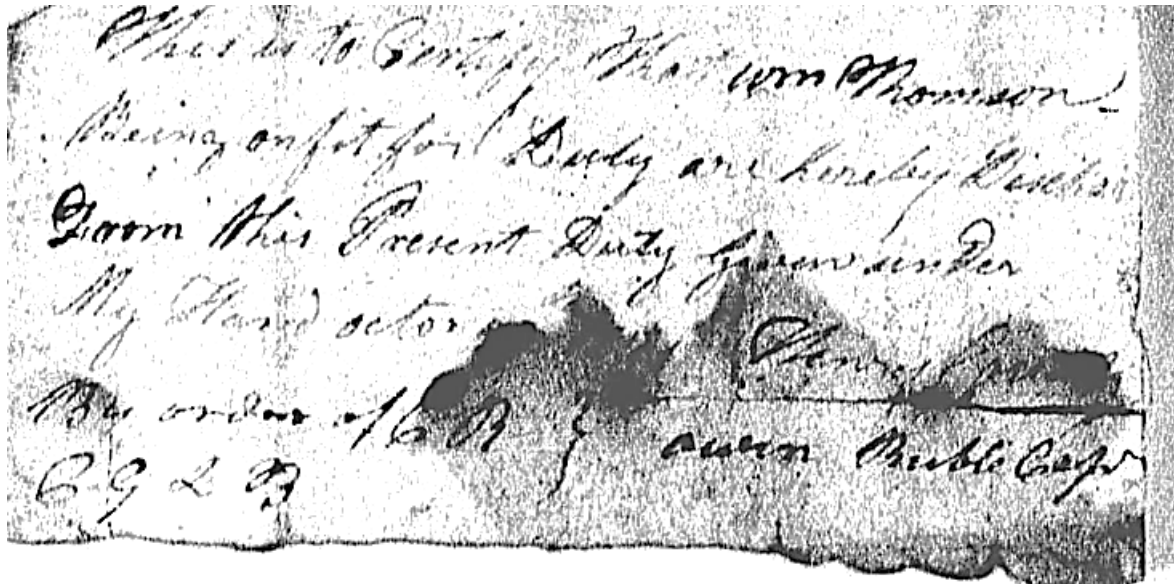 This is to Certify That wm Thomson
Being onfit for Duty are hereby Discha
From this Present Duty Given under
My Hand octor
Henry
By order of C R } owin Ruble Capt
C G L B